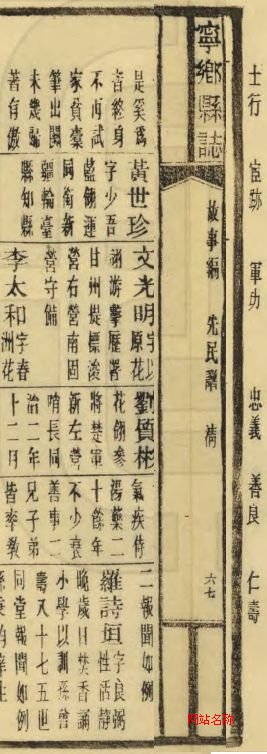 士行 宦跡 軍功 忠義 善良 仁壽
寧鄉縣誌 故事編 先民譜 清 六七
是奚爲
者終身
不再試
家貧槖
筆出關
未幾
著有傲
黃世珍
字少吾
藍翎運
同銜新
疆輪臺
縣知縣
文光明字以
原花
翎游擊歷署
甘州提標後
營右營南固
營守備
李太和字春
洲花
劉價彬
花翎參
將楚軍
新左營
哨長同
治二年
十二月
氣疾侍
湯藥二
十餘年
不少衰
善事二
兄子弟
皆率教
二報聞如例
羅詩垣字良弼
性活靜
晚歲日焚香誦
小學以訓孫曾
壽八十七五世
同堂報聞如例
网站名称